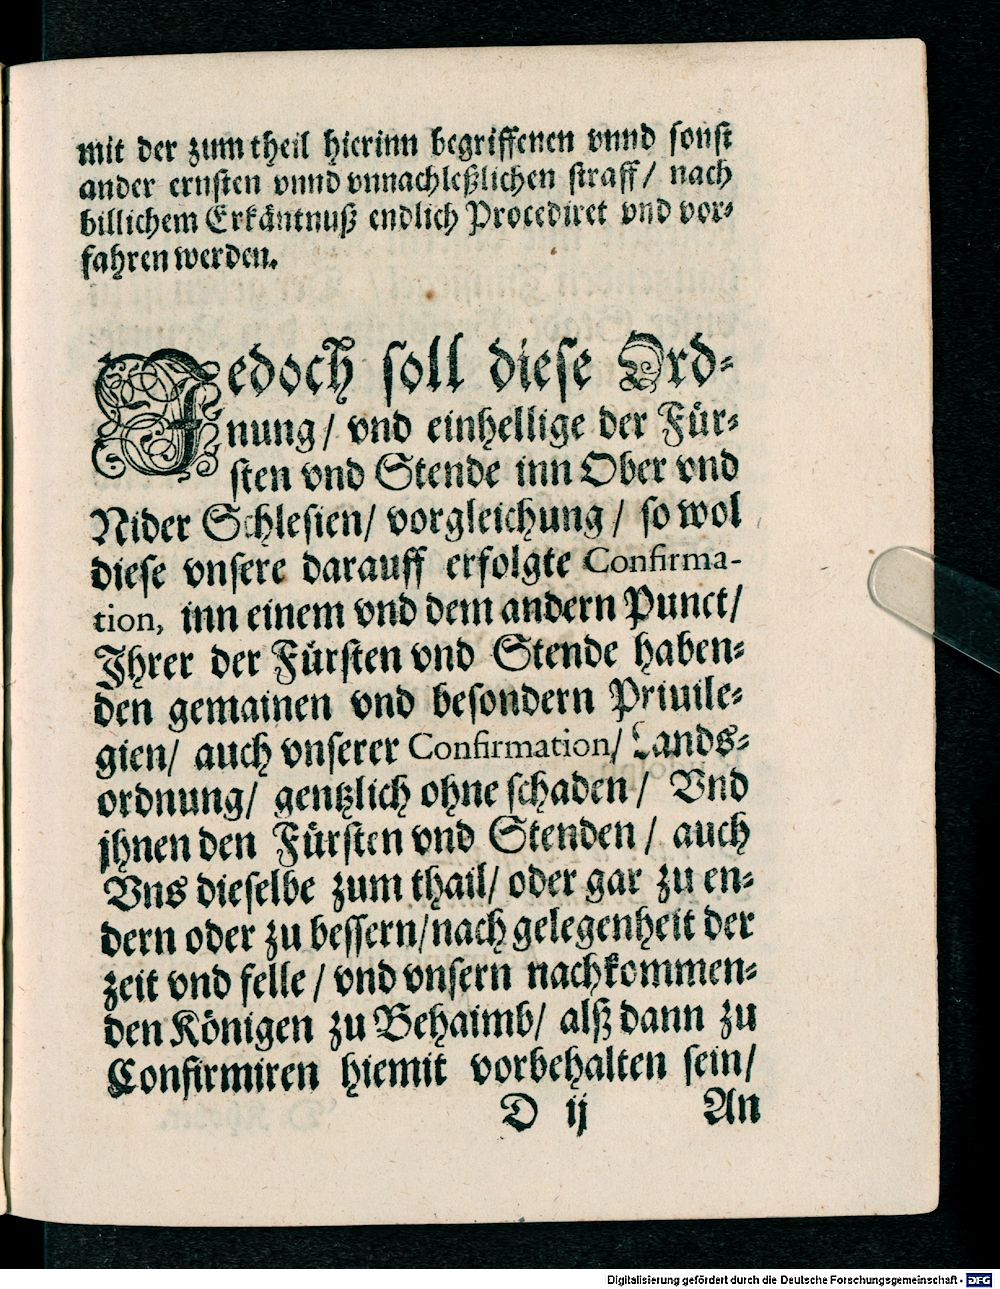 mit der zum theil hierinn begriffenen vnnd sonst
ander ernsten vnnd vnnachleßlichen straff/ nach
billichem Erkäntnuß endlich Procediret vnd vor⸗
fahren werden.
Jedoch soll diese Ord⸗
nung/ vnd einhellige der Für⸗
sten vnd Stende inn Ober vnd
Nider Schlesien/ vorgleichung/ so wol
diese vnsere darauff erfolgte Confirma-
tion, inn einem vnd dem andern Punct/
Jhrer der Fürsten vnd Stende haben⸗
den gemainen vnd besondern Priuile⸗
gien/ auch vnserer Confirmation/ Lands⸗
ordnung/ gentzlich ohne schaden/ Vnd
jhnen den Fürsten vnd Stenden/ auch
Vns dieselbe zum thail/ oder gar zu en⸗
dern oder zu bessern/nach gelegenheit der
zeit vnd felle/ vnd vnsern nachkommen⸗
den Königen zu Behaimb/ alß dann zu
Confirmiren hiemit vorbehalten sein/
D ij An
Digitalisierung gefördert durch die Deutsche Forschungsgemeinschaft - DFG